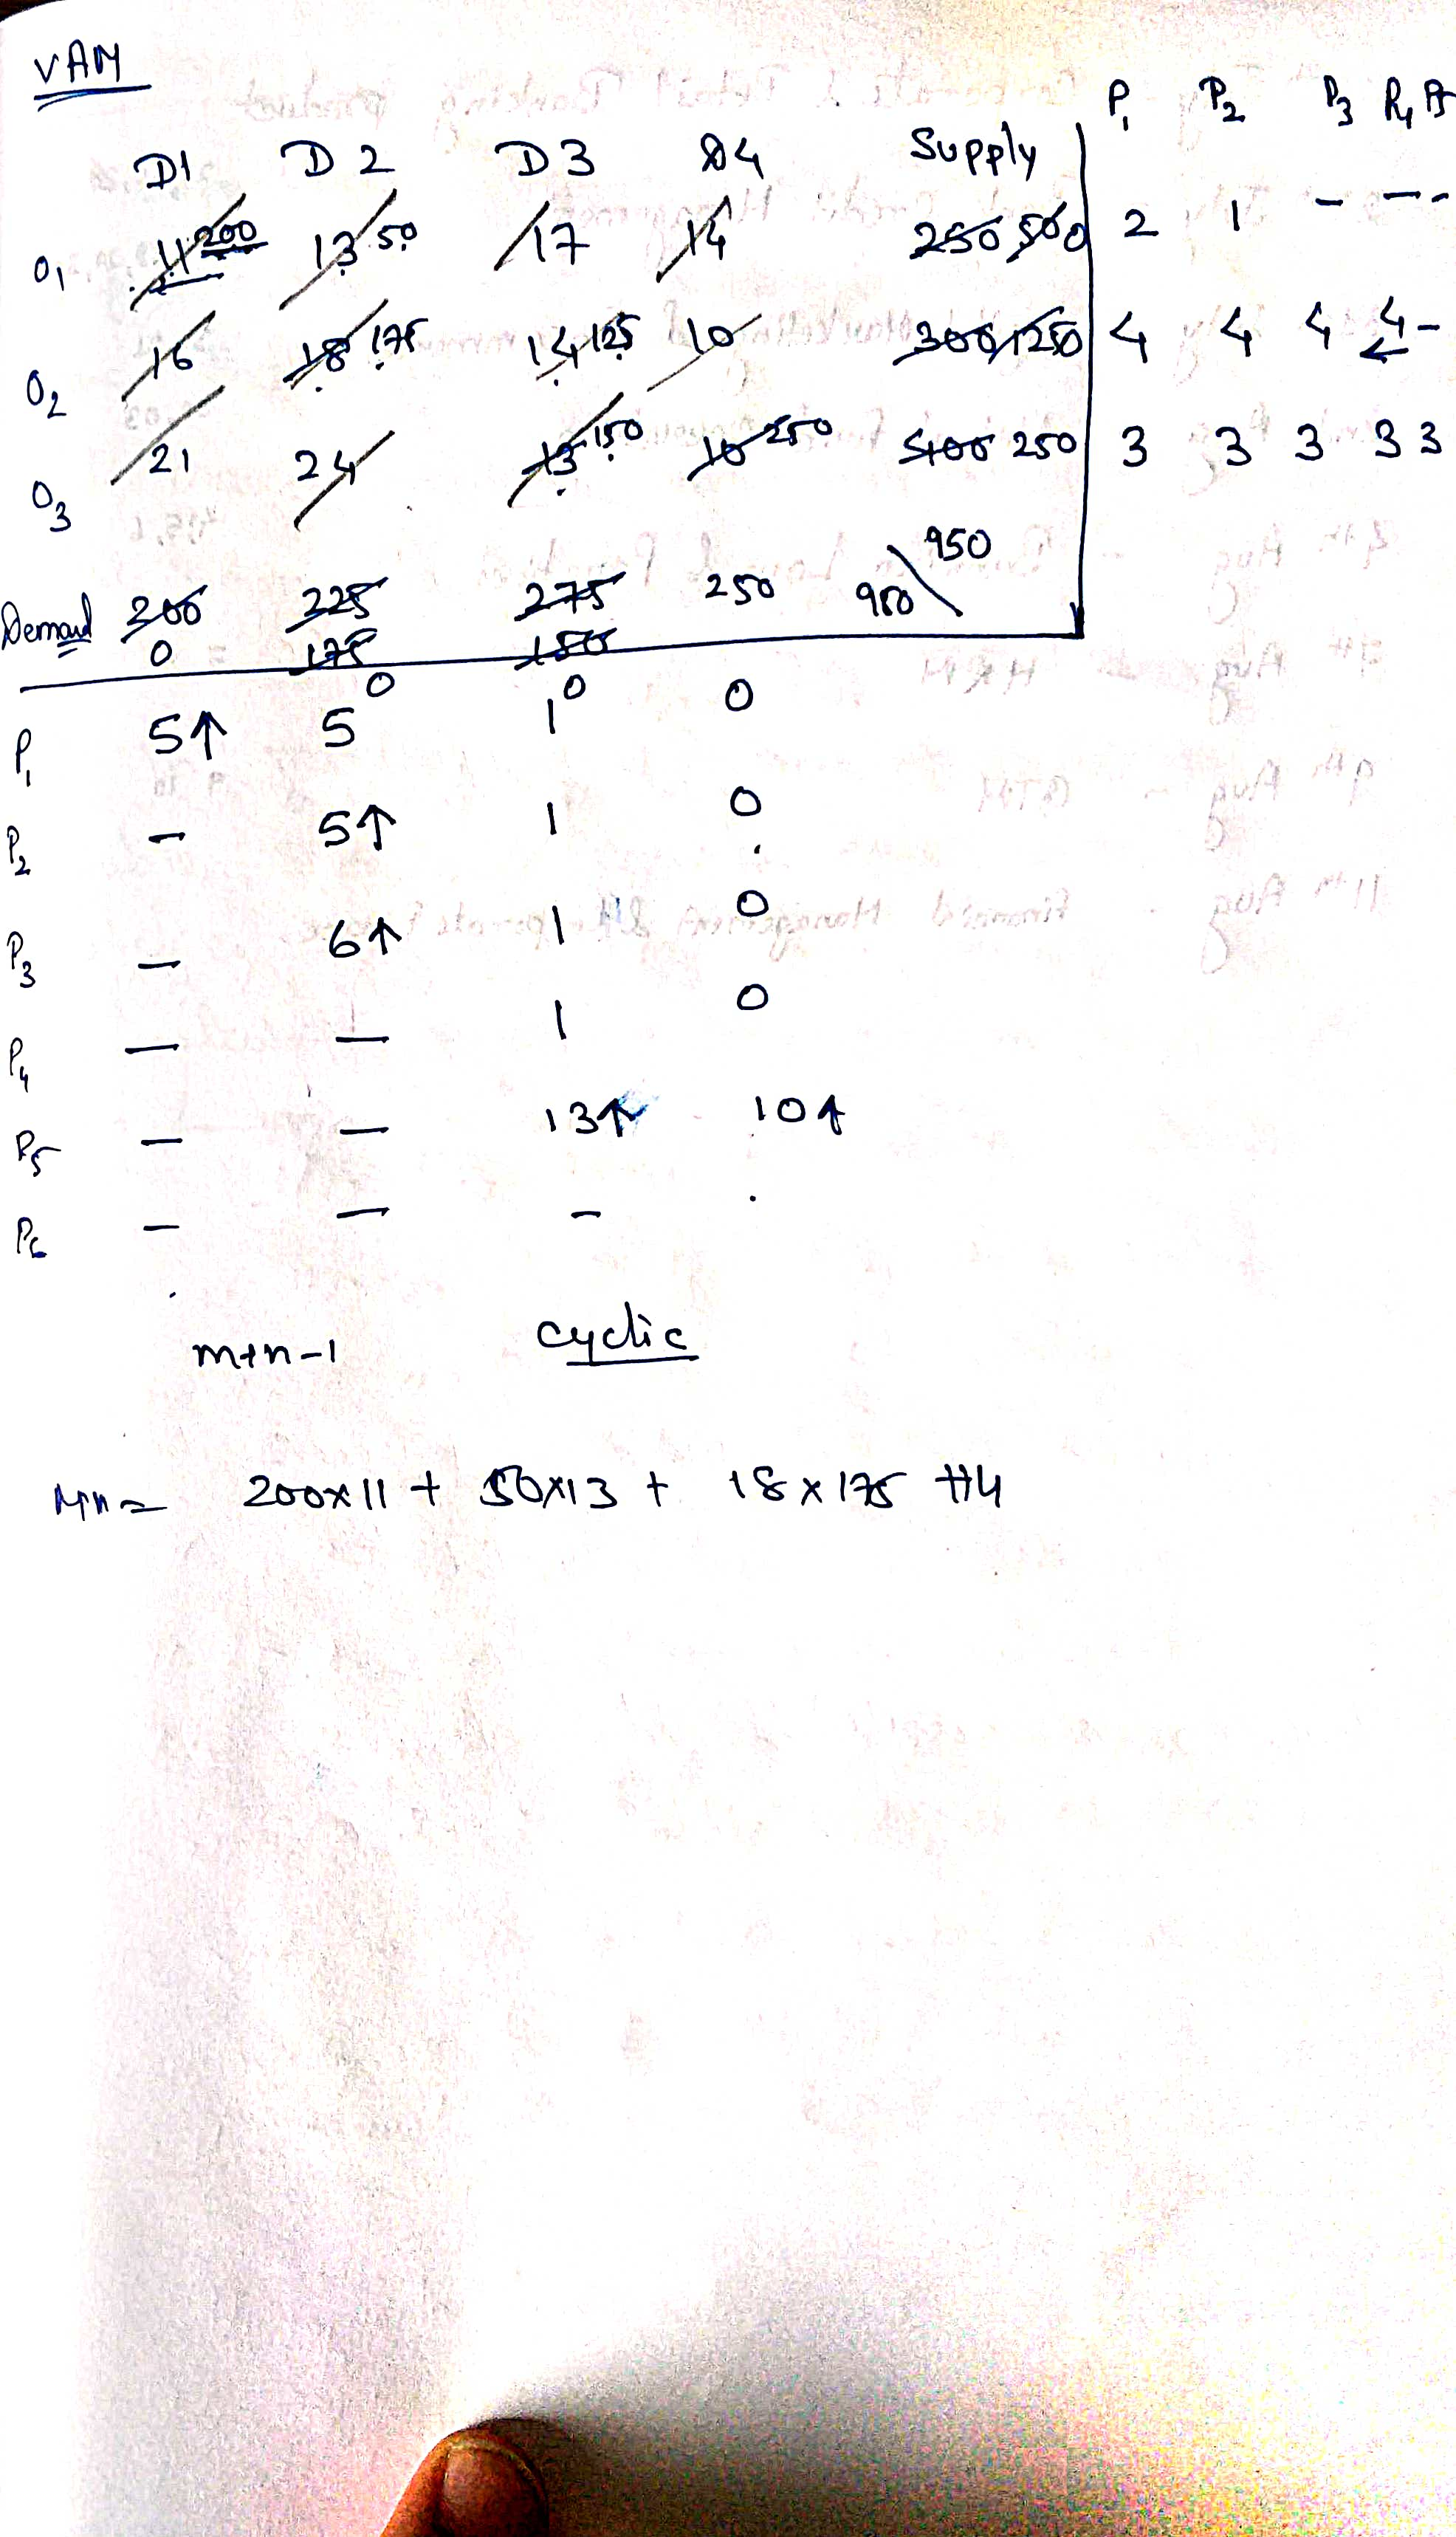 VAM
P1 P2 P3 P4 P5
D1 D2 D3 D4 Supply
O1 11 200 13 50 17 14 250 50 0 2 1 - - -
O2 16 18 175 14 125 10 300 125 0 4 4 4 4 -
O3 21 24 13 150 10 250 400 250 3 3 3 3 3
950
Demand 200 225 275 250 950
0 175 150
0 0
P1 5↑ 5 1 0
P2 - 5↑ 1 0
P3 - 6↑ 1 0
P4 - - 1 0
P5 - - 13↑ 10↑
P6 - - -
m+n-1 cyclic
Min = 200x11 + 50x13 + 18x175 +14